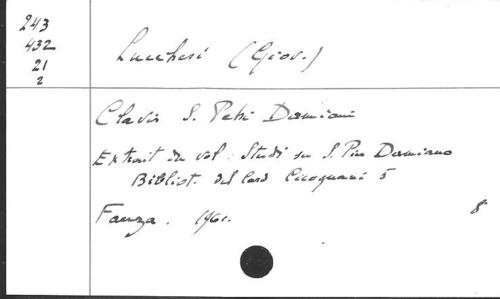 243
432
21
2
Lucchesi (Giov.)
Clavis S. Petri Damiani
Extrait du vol : Studi su S. Pier Damiano
Bibliot. del Card Cicognani 5
Faenza. 1961.
8°